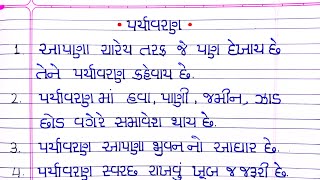 • પર્યાવરણ •
1. આપણા ચારેય તરફ જે પણ દેખાય છે
તેને પર્યાવરણ કહેવાય છે.
2. પર્યાવરણ માં હવા, પાણી, જમીન, ઝાડ
છોડ વગેરે સમાવેશ થાય છે.
3. પર્યાવરણ આપણા જીવન નો આધાર છે.
4. પર્યાવરણ સ્વચ્છ રાખવું ખૂબ જ જરૂરી છે.